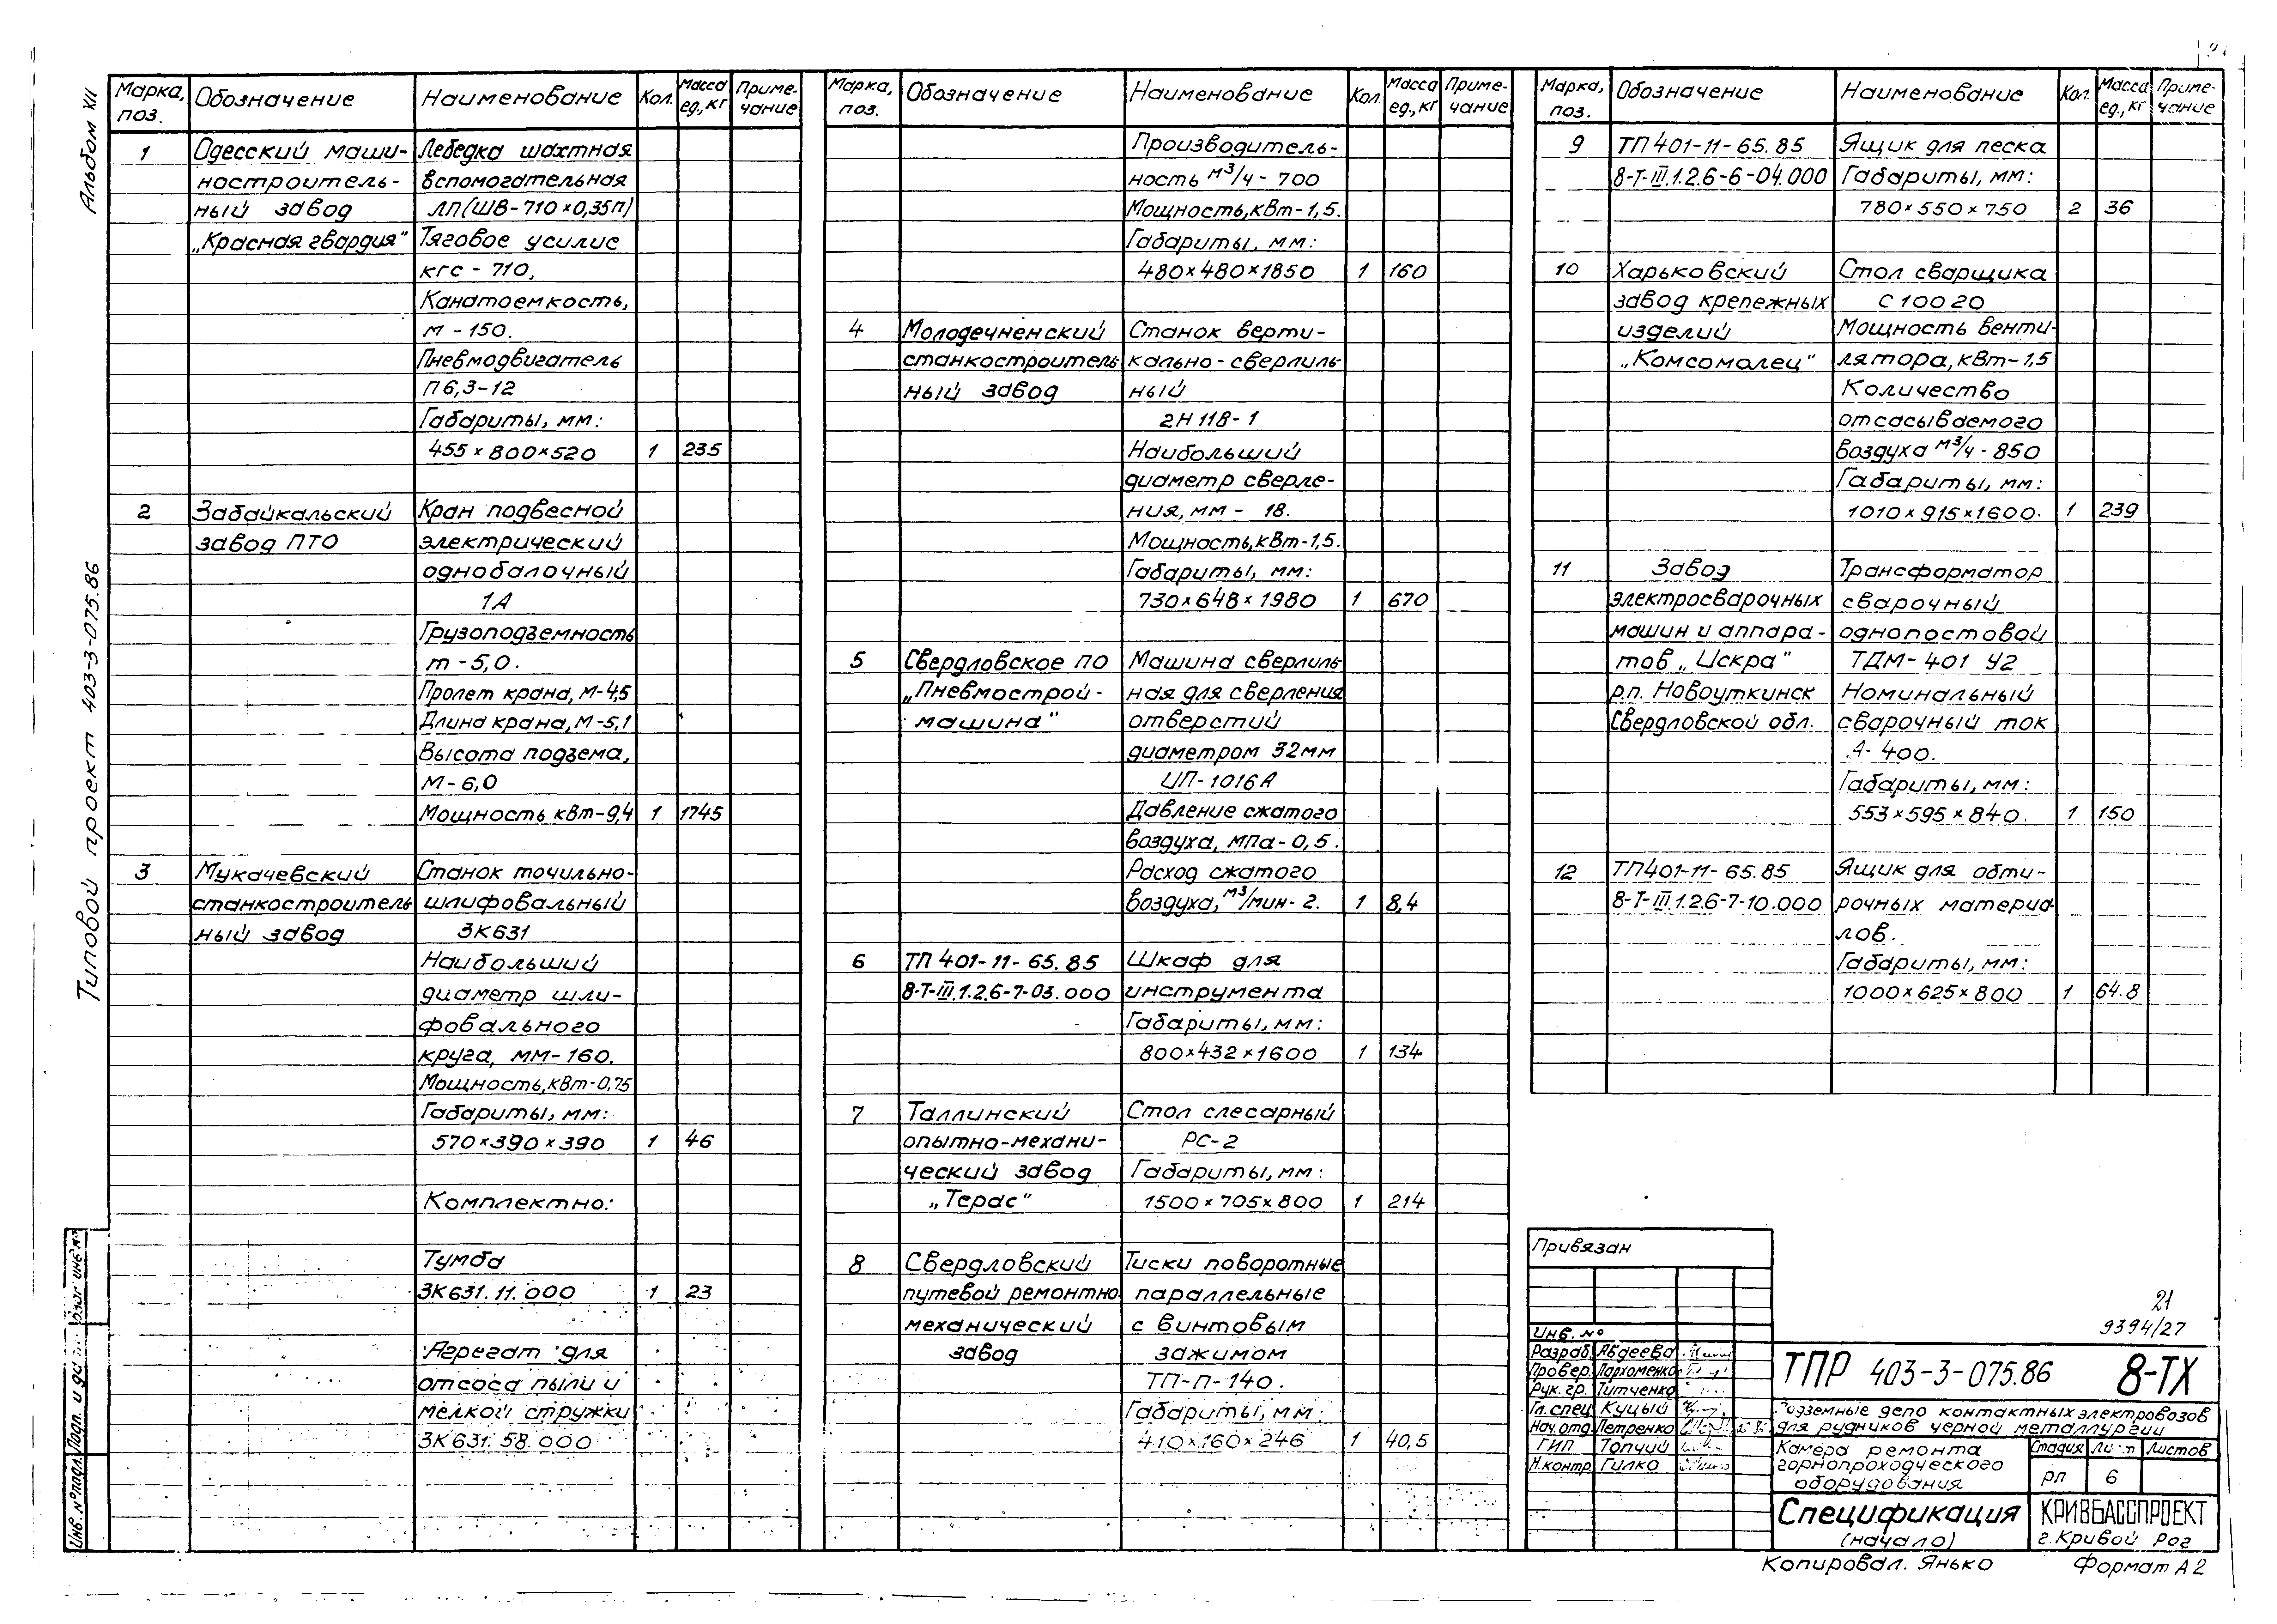 Альбом XII
Типовой проект 403-3-075.86
Марка, поз. Обозначение Наименование Кол. Масса ед., кг Приме-чание
1 Одесский маши- Лебедка шахтная
ностроитель- вспомогательная
ный завод ЛП(ШВ-710×0,35П)
„Красная гвардия" Тяговое усилие
кгс - 710,
Канатоемкость,
м - 150.
Пневмодвигатель
П6,3-12
Габариты, мм:
455×800×520 1 235
2 Забайкальский Кран подвесной
завод ПТО электрический
однобалочный
1А
Грузоподземность
т - 5,0.
Пролет крана, м-4,5
Длина крана, м-5,1
Высота подзема,
м-6,0
Мощность кВт-9,4 1 1745
3 Мукачевский Станок точильно-
станкостроитель шлифовальный
ный завод 3К631
Наибольший
диаметр шли-
фовального
круга, мм-160.
Мощность, кВт-0,75
Габариты, мм:
570×390×390 1 46
Комплектно:
Тумба
3К631.11.000 1 23
Агрегат для
отсоса пыли и
мелкой стружки
3К631.58.000
Марка, поз. Обозначение Наименование Кол. Масса ед., кг Приме-чание
Производитель-
ность м³/ч - 700
Мощность, кВт-1,5.
Габариты, мм:
480×480×1850 1 160
4 Молодечненский Станок верти-
станкостроитель кально-сверлиль-
ный завод ный
2Н118-1
Наибольший
диаметр сверле-
ния, мм - 18.
Мощность, кВт-1,5.
Габариты, мм:
730×648×1980 1 670
5 Свердловское ПО Машина сверлиль
„Пневмострой- ная для сверления
машина" отверстий
диаметром 32мм
ИП-1016А
Давление сжатого
воздуха, МПа-0,5.
Расход сжатого
воздуха, м³/мин-2. 1 8,4
6 ТП 401-11-65.85 Шкаф для
8-Т-III.1.2.6-7-03.000 инструмента
Габариты, мм:
800×432×1600 1 134
7 Таллинский Стол слесарный
опытно-механи- РС-2
ческий завод Габариты, мм:
„Терас" 1500×705×800 1 214
8 Свердловский Тиски поворотные
путевой ремонтно параллельные
механический с винтовым
завод зажимом
ТП-П-140.
Габариты, мм
410×160×246 1 40,5
Марка, поз. Обозначение Наименование Кол. Масса ед., кг Приме-чание
9 ТП 401-11-65.85 Ящик для песка
8-Т-III.1.2.6-6-04.000 Габариты, мм:
780×550×750 2 36
10 Харьковский Стол сварщика
завод крепежных С 10020
изделий Мощность венти-
„Комсомолец" лятора, кВт-1,5
Количество
отсасываемого
воздуха м³/ч - 850
Габариты, мм:
1010×915×1600. 1 239
11 Завод Трансформатор
электросварочных сварочный
машин и аппара- однопостовой
тов „Искра" ТДМ-401 У2
р.п. Новоуткинск Номинальный
Свердловской обл. сварочный ток
А- 400.
Габариты, мм:
553×595×840 1 150
12 ТП401-11-65.85 Ящик для обти-
8-Т-III.1.2.6-7-10.000 рочных материа-
лов.
Габариты, мм:
1000×625×800 1 64.8
Привязан
Инв. №
21
9394/27
Разраб. Авдеева
Провер. Пархоменко
Рук. гр. Титченко
Гл. спец Куцый
Нач. отд Петренко
ГИП Топчий
Н.контр. Гилко
ТПР 403-3-075.86 8-ТХ
Подземные депо контактных электровозов
для рудников черной металлургии
Камера ремонта
горнопроходческого
оборудования
Стадия Лист Листов
рп 6
Спецификация
(начало)
КРИВБАССПРОЕКТ
г. Кривой Рог
Копировал. Янько Формат А2
Инв. № подл. Подп. и да Взаг. инв. №